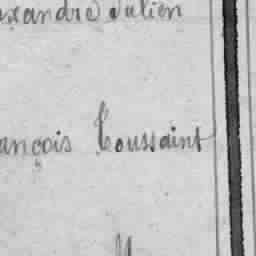 exandre Julien
ançois Toussaint